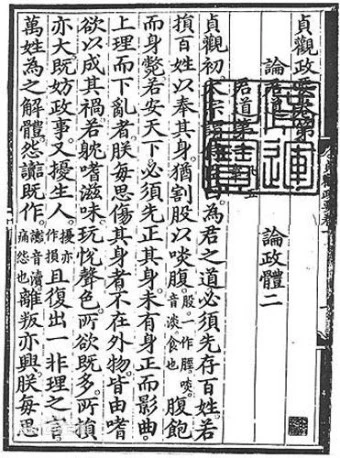 貞觀政要卷第一
論君道一 論政體二
君道第一
貞觀初太宗謂侍臣曰為君之道必須先存百姓若
損百姓以奉其身猶割股以啖腹股一作脛啖音淡食也腹飽
而身斃若安天下必須先正其身未有身正而影曲
上理而下亂者朕每思傷其身者不在外物皆由嗜
欲以成其禍若躭嗜滋味玩悅聲色所欲既多所損
亦大既妨政事又擾生人且復出一非理之言
萬姓為之解體怨讟既作讟音瀆痛怨也離叛亦興朕每思